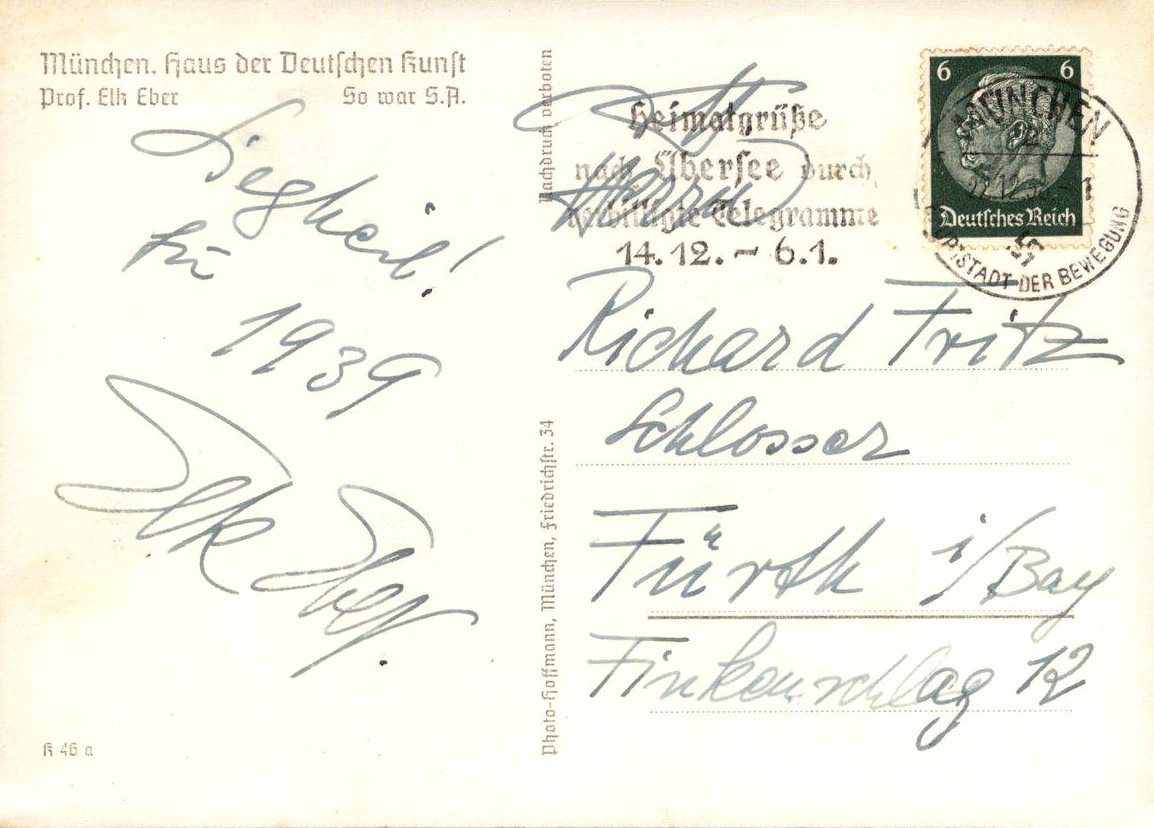 München. Haus der Deutschen Kunst
Prof. Elk Eber So war S.A.
Siegheil!
für 1939
Elk Eber
K 46 a
Nachdruck verboten
Photo-Hoffmann, München, Friedrichstr. 34
Heimatgrüße
nach Übersee durch
verbilligte Telegramme
14.12. – 6.1.
6 6
Deutsches Reich
MÜNCHEN
HAUPTSTADT DER BEWEGUNG
Herrn
Richard Fritz
Schlosser
Fürth i/Bay
Finkenschlag 12